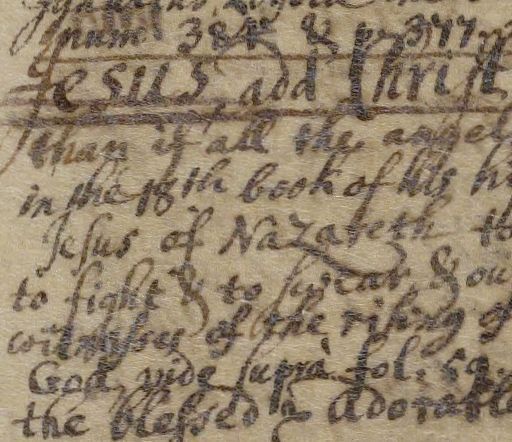 num 384 & p. 377
Jesus, add Christ
than if all the angel
in the 18th book of his hi
Jesus of Nazareth th
to fight & to swear, & ou
witnesses of the rising of
God, vide supra fol. 59.
the blessed & adorable